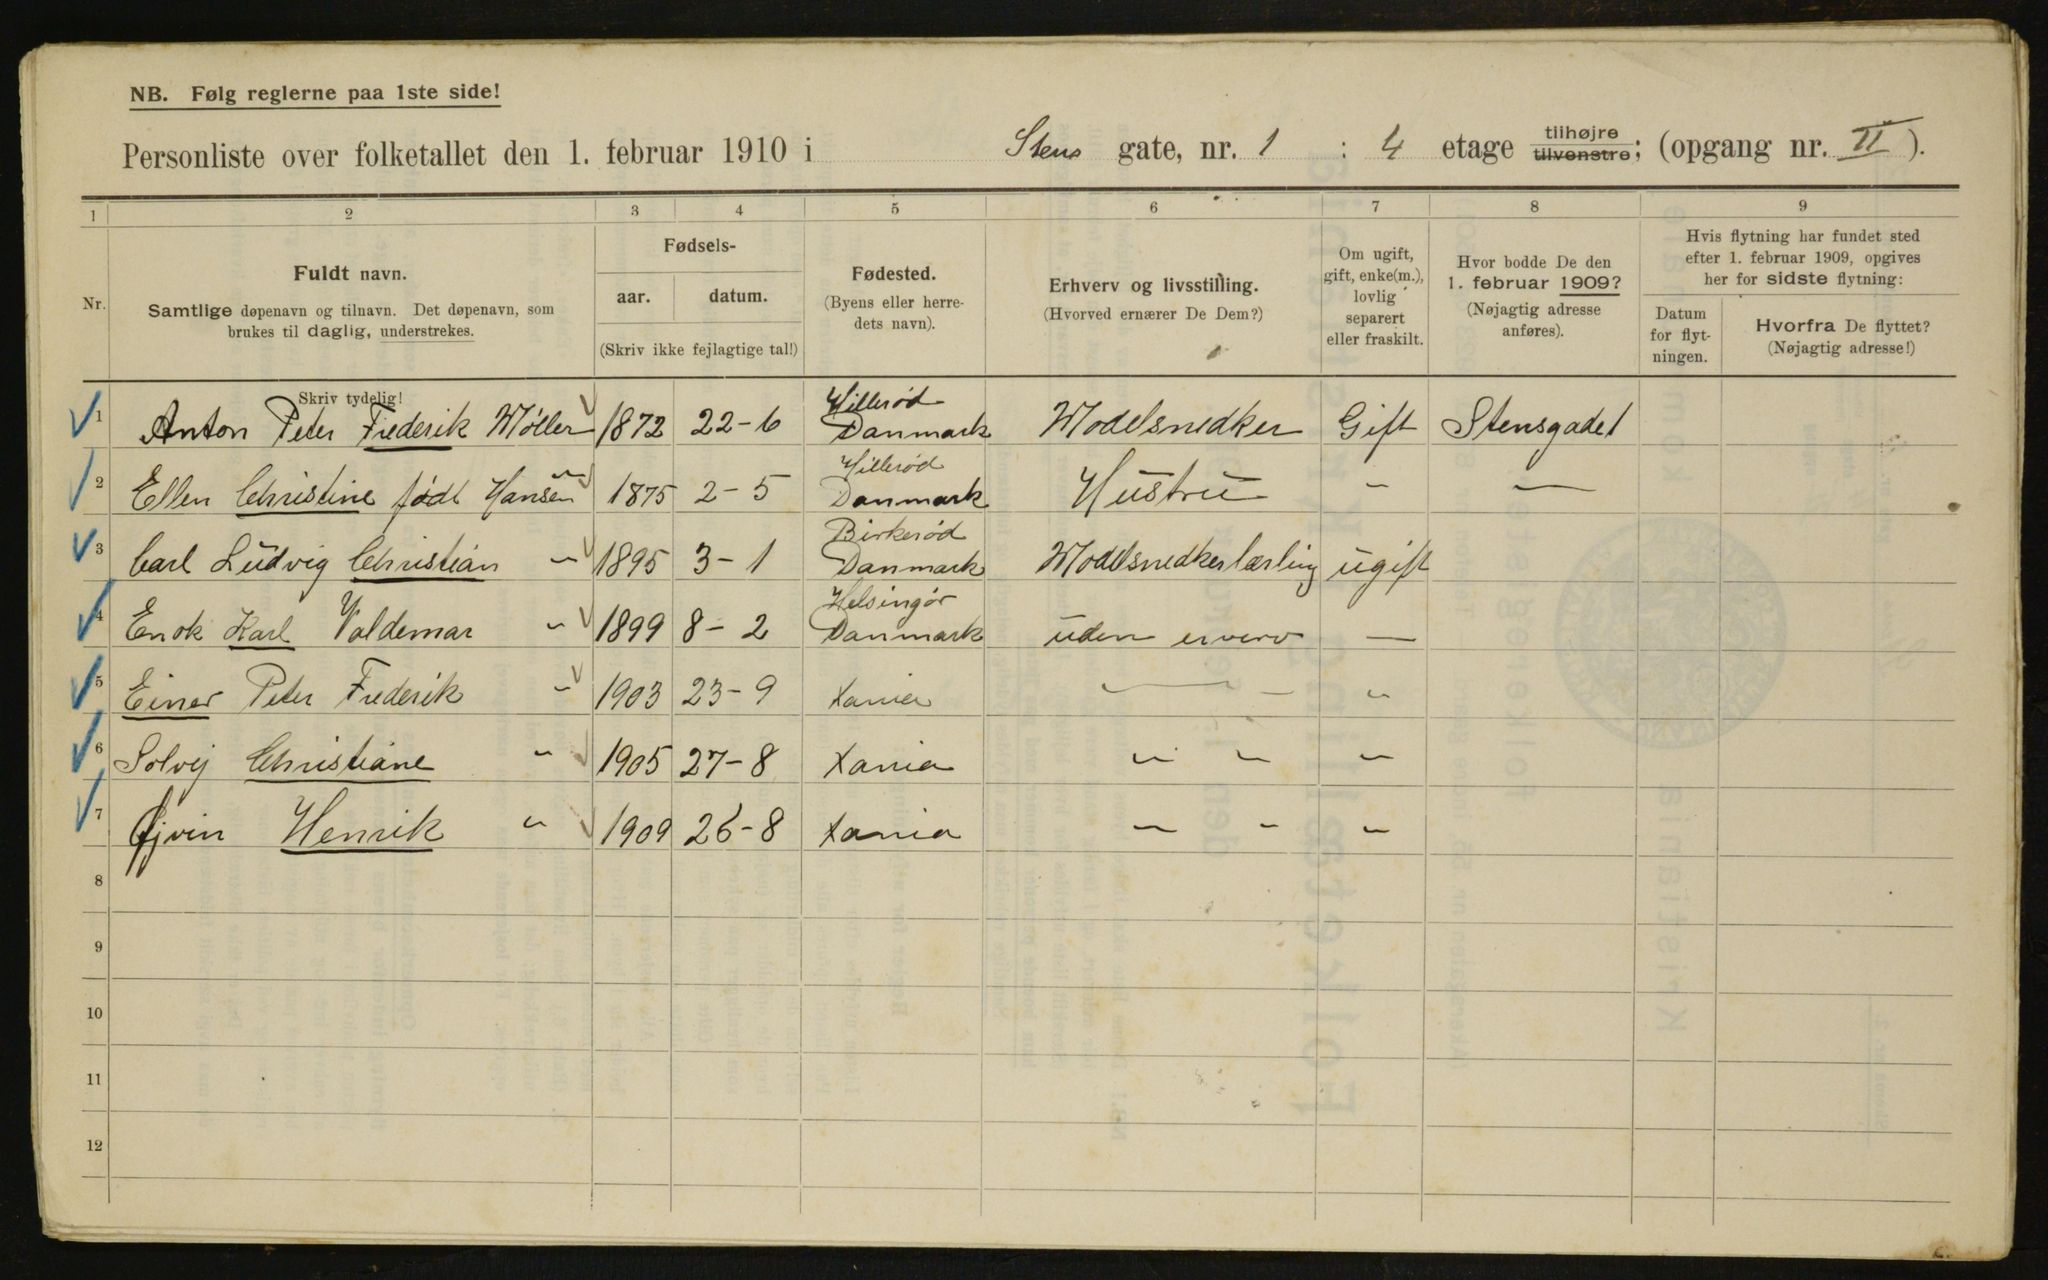 NB. Følg reglerne paa 1ste side!
Personliste over folketallet den 1. februar 1910 i Stens gate, nr. 1 : 4 etage tilhøjre tilvenstre; (opgang nr. II ).
1 2 3 4 5 6 7 8 9
Nr.
Fuldt navn.
Samtlige døpenavn og tilnavn. Det døpenavn, som
brukes til daglig, understrekes.
Fødsels-
aar. datum.
(Skriv ikke fejlagtige tal!)
Fødested.
(Byens eller herre-
dets navn).
Erhverv og livsstilling.
(Hvorved ernærer De Dem?)
Om ugift,
gift, enke(m.),
lovlig
separert
eller fraskilt.
Hvor bodde De den
1. februar 1909?
(Nøjagtig adresse
anføres).
Hvis flytning har fundet sted
efter 1. februar 1909, opgives
her for sidste flytning:
Datum
for flyt-
ningen.
Hvorfra De flyttet?
(Nøjagtig adresse!)
Skriv tydelig!
Hillerød
1 Anton Peter Frederik Møller 1872 22-6 Danmark Modelsnedker Gift Stensgade 1
Hillerød
2 Ellen Christine født Hansen 1875 2-5 Danmark Hustru " —
Birkerød
3 Carl Ludvig Christian " 1895 3-1 Danmark Modelsnedkerlærling ugift
Helsingør
4 Enok Karl Valdemar " 1899 8-2 Danmark uden erverv —
5 Einer Peter Frederik " 1903 23-9 Xania — " "
6 Solvej Christiane " 1905 27-8 Xania " " "
7 Øjvin Henrik " 1909 26-8 Xania " " "
8
9
10
11
12